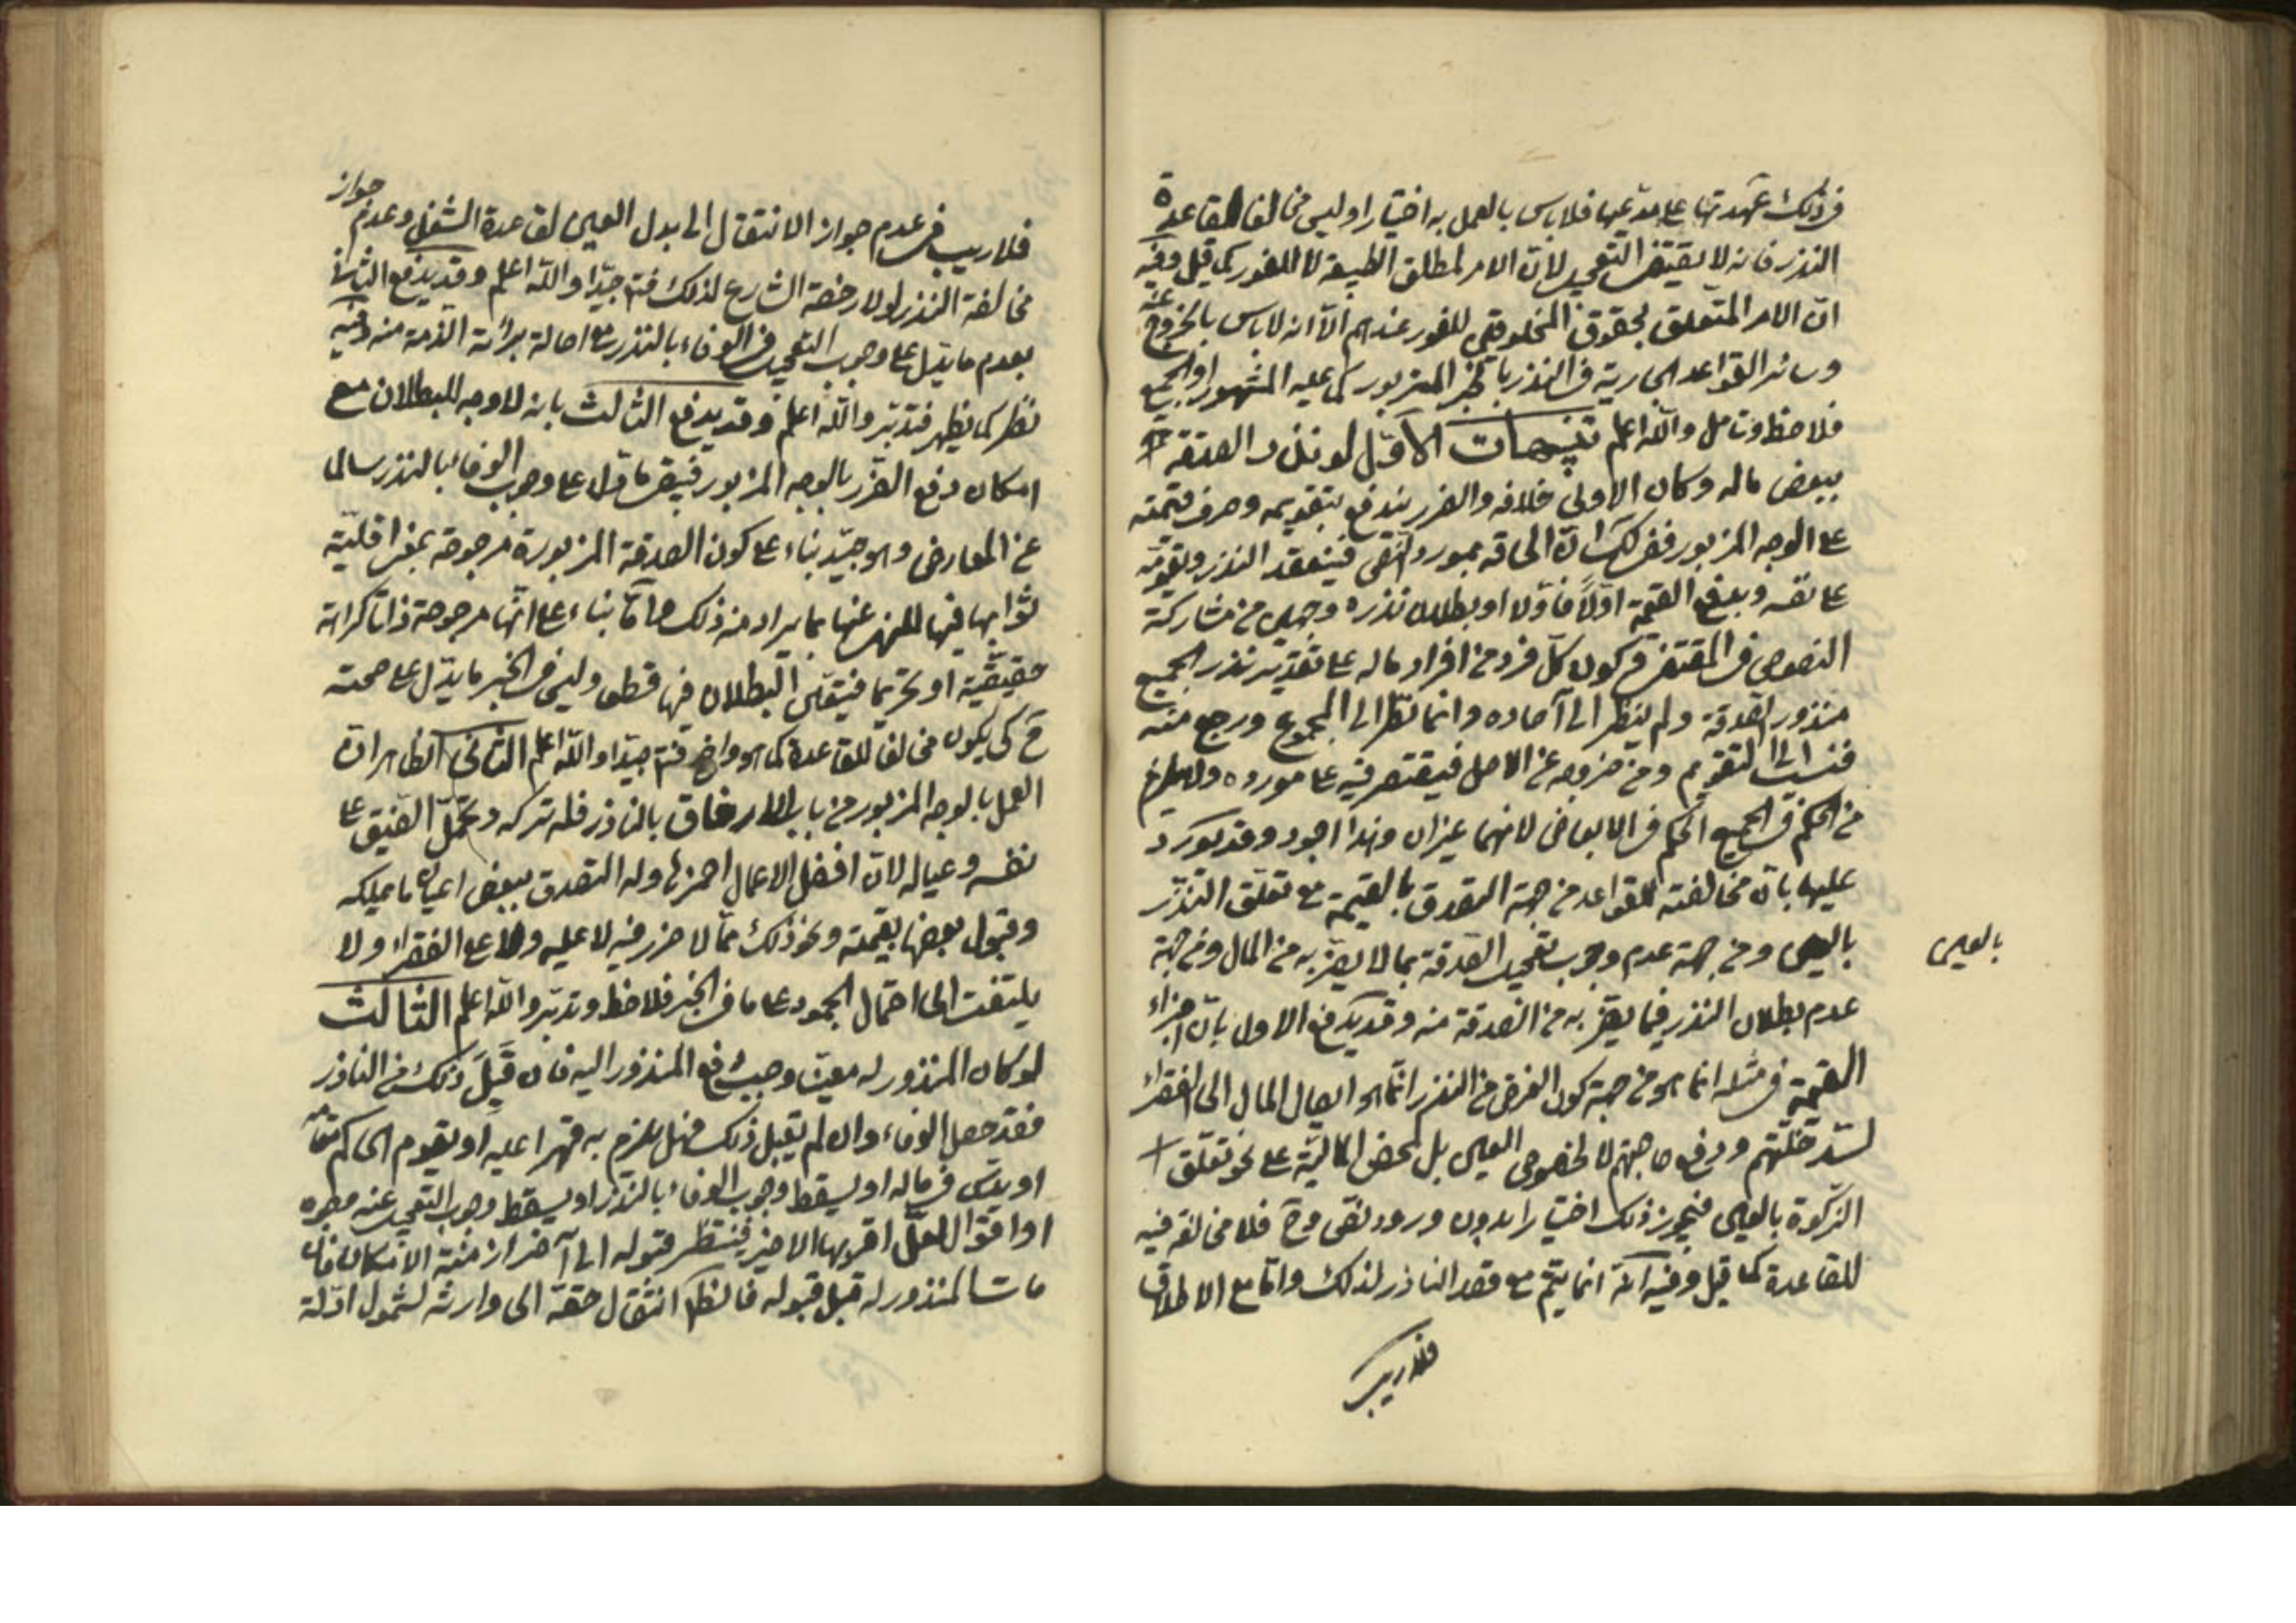 في ذلك عهدتها على مدعيها فلا باس بالعمل به اختيارا وليس مخالفا لقاعدة
النذر فانه لا يقتضي التعجيل لان الامر لمطلق الطبيعة لا للفور كما قيل وفيه
انّ الامر المتعلق بحقوق المخلوقين للفور عندهم الّا انه لا باس بالخروج عنه
وسائر القواعد الجارية في النذر بالخبر المزبور كما عليه المشهور او الجميع
فلاحظ وتامل والله اعلم تنبيهات الاوّل لو نذر الصدقة
ببعض ماله وكان الاولى خلافه والضرر يندفع بتقويمه وصرف قيمته
على الوجه المزبور ففي ذلك انّ الحاقه بمورد النص فينعقد النذر وتقويمه
على نفسه ودفع القيمة اولًا فاولا او بطلان نذره وجهين من مشاركة
النصوص في المقتضي في كون كلّ فرد من افراد ماله على تقدير نذر الجميع
منذور الصدقة ولم ينظر الى آحاده وانما نظر الى المجموع ورجع منه
الى التقويم ومن خروجه عن الاصل فيقتصر فيه على مورده ولا يلزم
من الحكم في الجميع الحكم في الابعاض لانهما غيران وهذا اجود وقد يورد
عليها بانّ مخالفته للقواعد من جهة التصدق بالقيمة مع تعلق النذر
بالعين ومن جهة عدم وجوب تعجيل الصدقة بما لا يضرّ به من المال ومن جهة
بالعين
عدم بطلان النذر فيما يضرّ به من الصدقة منه وقد يدفع الاول بانّ اجزاء
القيمة في مثله انما هو من جهة كون الغرض من النذر انما هو ايصال المال الى الفقراء
لسدّ خلّتهم ودفع حاجتهم لا لخصوص العين بل لمحض المالية على نحو تعلّق
الزكوة بالعين فيجوز ذلك اختيارا بدون ورود نص وح فلا مخالفة فيه
للقاعدة كما قيل وفيه انّه انما يتمّ مع قصد الناذر لذلك وامّا مع الاطلاق
فلا ريب
فلا ريب في عدم جواز الانتقال الى بدل العين لقاعدة الشغل وعدم جواز
مخالفة النذر لولا رخصة الشارع لذلك فتم جيّدا والله اعلم وقد يدفع الثاني
بعدم ما يدلّ على وجوب التعجيل في الوفاء بالنذر مع اصالة برائة الذمة منه وفيه
نظر كما يظهر فتدبّر والله اعلم وقد يدفع الثالث بانه لا وجه للبطلان مع
امكان دفع الضرر بالوجه المزبور فيبقى ما دل على وجوب الوفاء بالنذر سالما
عن المعارض وهو جيّد بناء على كون الصدقة المزبورة مرجوحة بمعنى اقليّة
ثوابها فيها للنهي عنها بما يراد منه ذلك واما بناء على انّها مرجوحة ذاتا كراهة
حقيقيّة او تحريما فيتعيّن البطلان فيها قطعا وليس في الخبر ما يدلّ على صحته
ح كي يكون مخالفا للقاعدة كما هو واضح فتم جيّدا والله اعلم الثاني الظاهر انّ
العمل بالوجه المزبور من باب الارفاق بالناذر فله تركه وتحمّل الضيق على
نفسه وعياله لانّ افضل الاعمال احمزها وله التصدق ببعض اعيان ما يملكه
وقبول بعضها بقيمته ونحو ذلك ممّا لا ضرر فيه لا عليه ولا على الفقراء ولا
يلتفت الى احتمال الجمود على ما في الخبر فلاحظ وتدبّر والله اعلم الثالث
لو كان المنذور له معيّنا وجب دفع المنذور اليه فان قَبِلَ ذلك من الناذر
فقد حصل الوفاء وان لم يقبل ذلك فهل يلزم به قهرا عليه او يقوم الحاكم مقامه
او يدس في ماله او يسقط وجوب الوفاء بالنذر او يسقط وجوب التعجيل عنه
او اقوال لعلّ اقربها الاخير فينتظر قبوله الى آخر ازمنة الامكان فان
مات المنذور له قبل قبوله فالظ انتقال حقه الى وارثه لشمول ادّلة